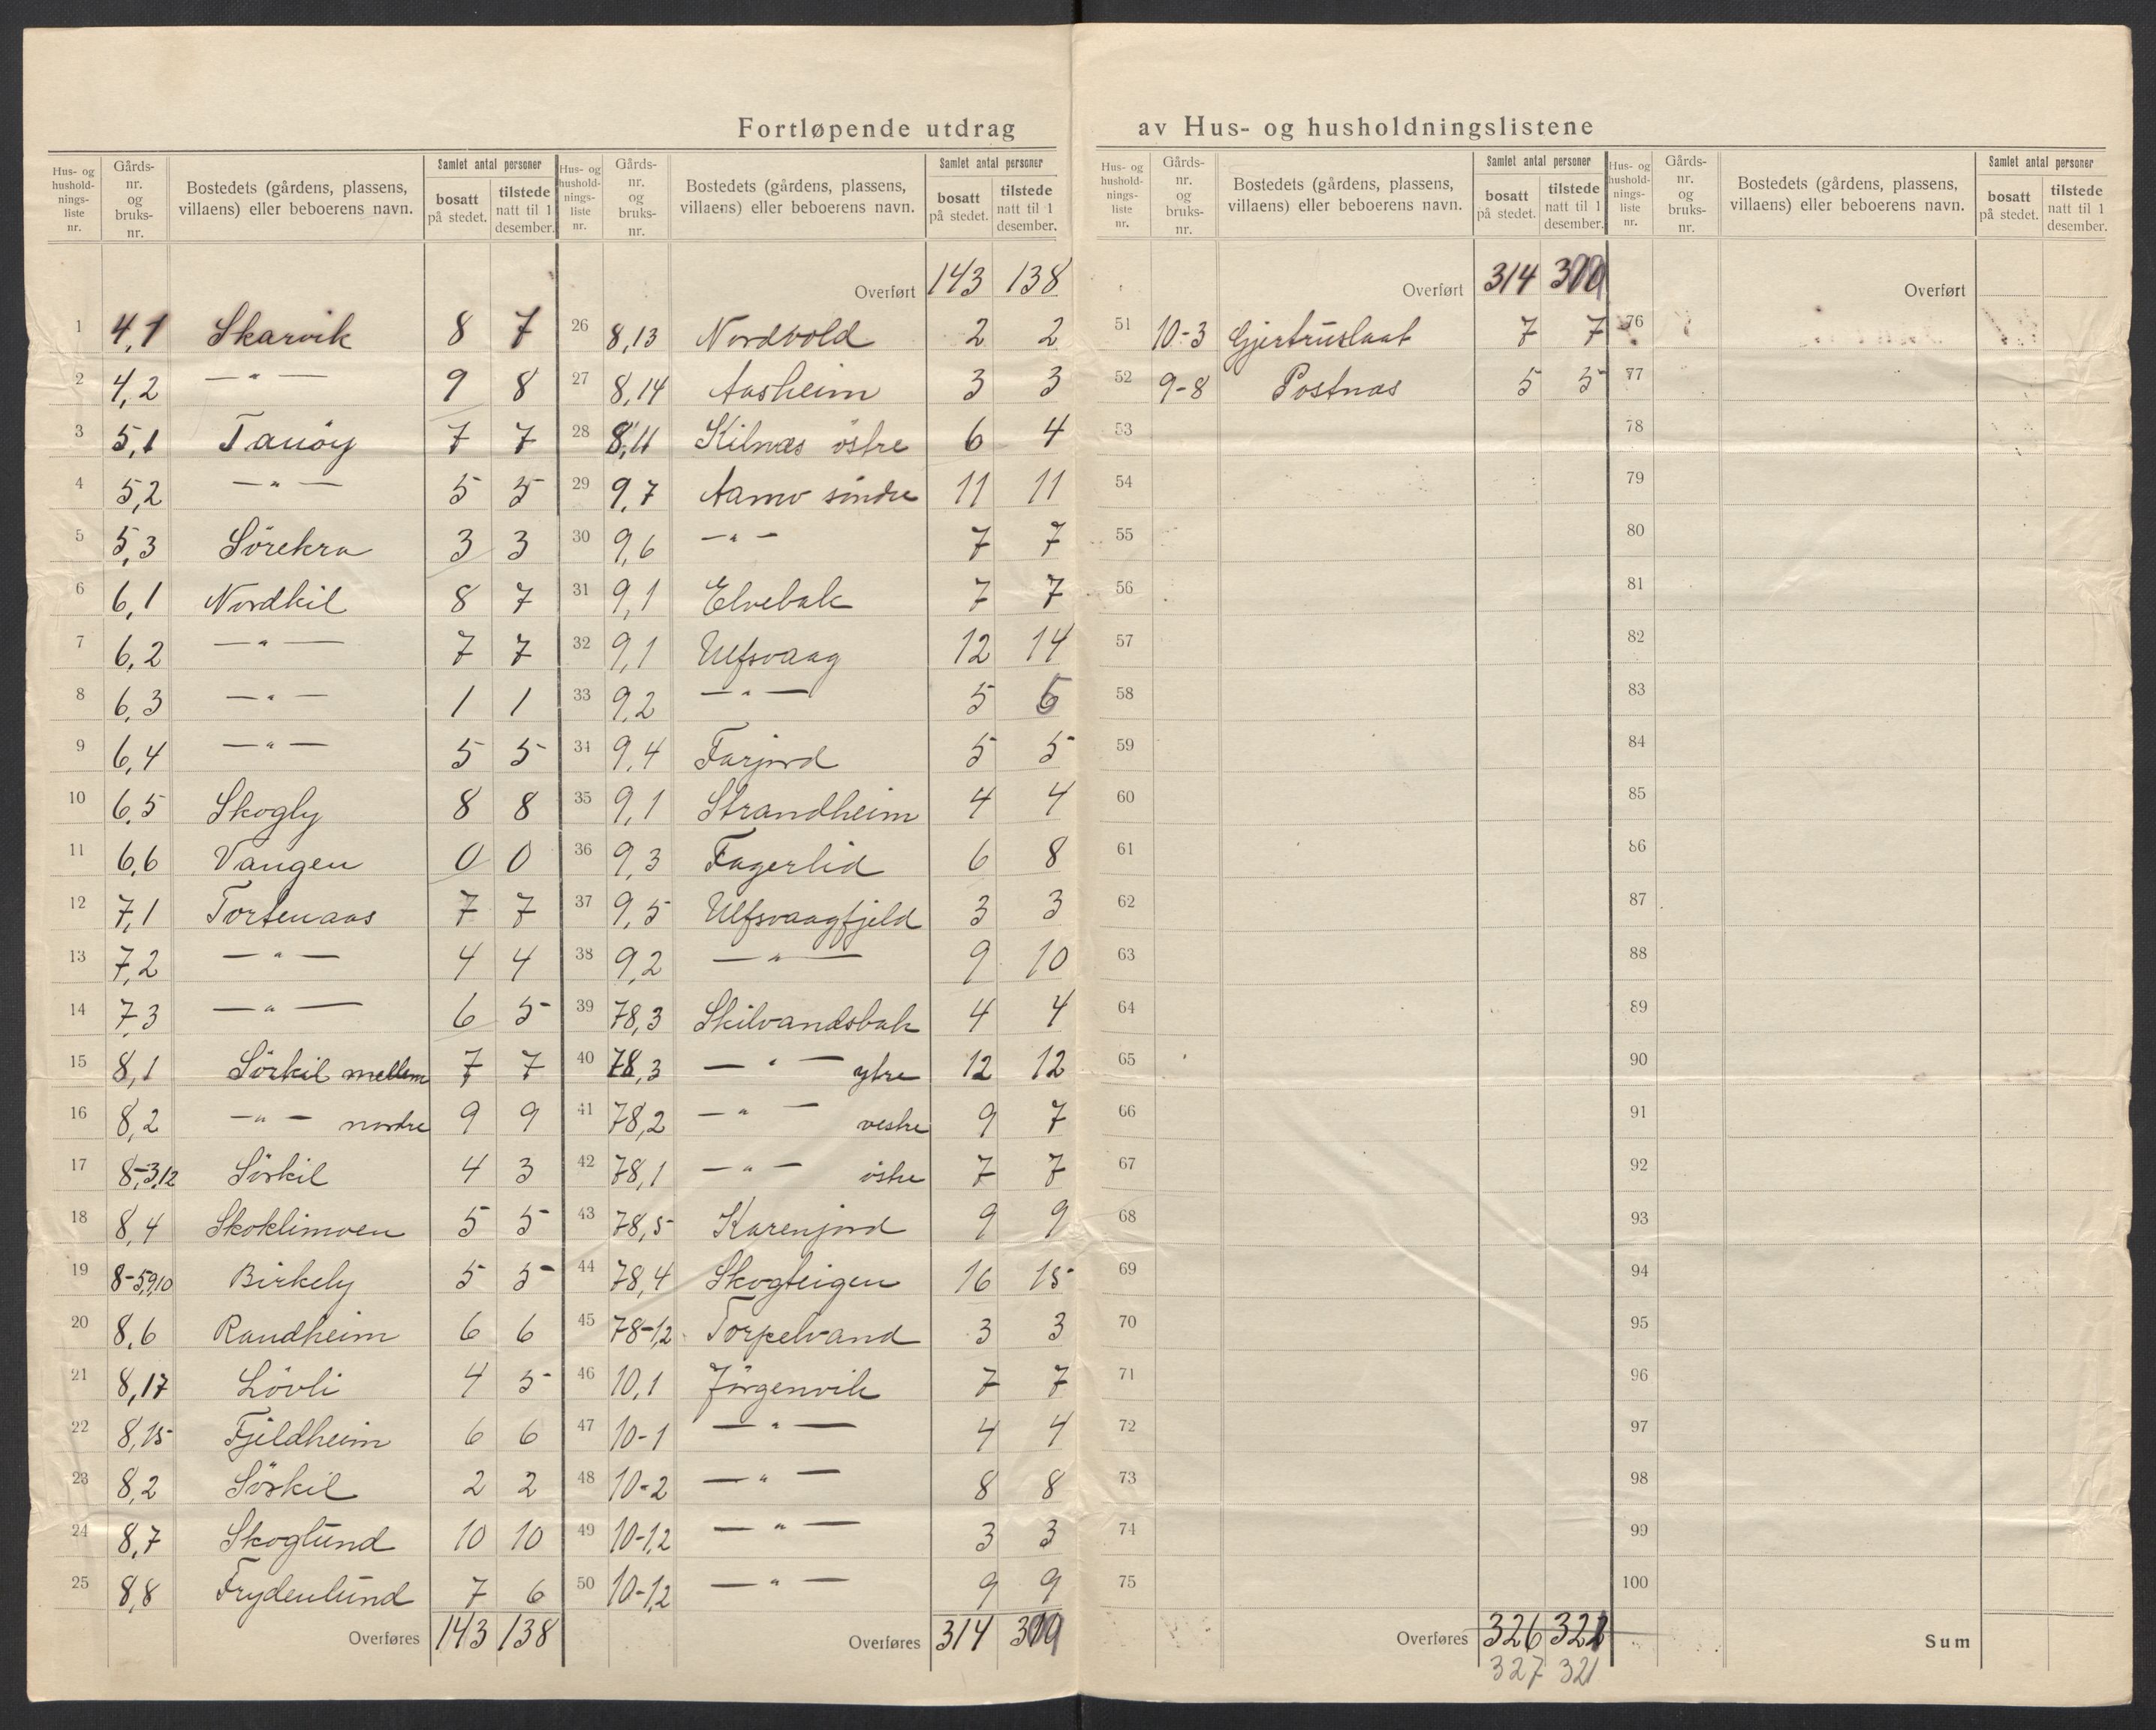 Fortløpende utdrag av Hus- og husholdningslistene
Hus- og hushold- nings- liste nr. | Gårds- nr. og bruks- nr. | Bostedets (gårdens, plassens, villaens) eller beboerens navn. | Samlet antal personer | bosatt på stedet. | tilstede natt til 1 desember.
1 4,1 Skarvik 8 7
2 4,2 — " — 9 8
3 5,1 Tanöy 7 7
4 5,2 — " — 5 5
5 5,3 Sörekra 3 3
6 6,1 Nordkil 8 7
7 6,2 — " — 7 7
8 6,3 — " — 1 1
9 6,4 — " — 5 5
10 6,5 Skogly 8 8
11 6,6 Vangen 0 0
12 7,1 Tortenaas 7 7
13 7,2 — " — 4 4
14 7,3 — " — 6 5
15 8,1 Sörkil mellem 7 7
16 8,2 — " — nordre 9 9
17 8-3,12 Sörkil 4 3
18 8,4 Skoklimoen 5 5
19 8-5,9,10 Birkely 5 5
20 8,6 Randheim 6 6
21 8,17 Lövli 4 5
22 8,15 Fjeldheim 6 6
23 8,2 Sörkil 2 2
24 8,7 Skoglund 10 10
25 8,8 Frydenlund 7 6
Overføres 143 138
Hus- og hushold- nings- liste nr. | Gårds- nr. og bruks- nr. | Bostedets (gårdens, plassens, villaens) eller beboerens navn. | Samlet antal personer | bosatt på stedet. | tilstede natt til 1 desember.
Overført 143 138
26 8,13 Nordvold 2 2
27 8,14 Aasheim 3 3
28 8,11 Kilnæs östre 6 4
29 9,7 Aamo söndre 11 11
30 9,6 — " — 7 7
31 9,1 Elvebak 7 7
32 9,1 Ulfsvaag 12 14
33 9,2 — " — 5
34 9,4 Farjord 5 5
35 9,1 Strandheim 4 4
36 9,3 Fagerlid 6 8
37 9,5 Ulfsvaagfjeld 3 3
38 9,2 — " — 9 10
39 78,3 Skilvandsbak 4 4
40 78,3 — " — ytre 12 12
41 78,2 — " — vestre 9 7
42 78,1 — " — östre 7 7
43 78,5 Karenjord 9 9
44 78,4 Skogteigen 16 15
45 78-1,2 Torpelvand 3 3
46 10,1 Jörgenvik 7 7
47 10-1 — " — 4 4
48 10-2 — " — 8 8
49 10-1,2 — " — 3 3
50 10-1,2 — " — 9 9
Overføres 314 309
Hus- og hushold- nings- liste nr. | Gårds- nr. og bruks- nr. | Bostedets (gårdens, plassens, villaens) eller beboerens navn. | Samlet antal personer | bosatt på stedet. | tilstede natt til 1 desember.
Overført 314 309
51 10-3 Gjertruslaat 7 7
52 9-8 Postnas 5 5
53
54
55
56
57
58
59
60
61
62
63
64
65
66
67
68
69
70
71
72
73
74
75
Overføres 326 321
327 321
Hus- og hushold- nings- liste nr. | Gårds- nr. og bruks- nr. | Bostedets (gårdens, plassens, villaens) eller beboerens navn. | Samlet antal personer | bosatt på stedet. | tilstede natt til 1 desember.
Overført
76
77
78
79
80
81
82
83
84
85
86
87
88
89
90
91
92
93
94
95
96
97
98
99
100
Sum